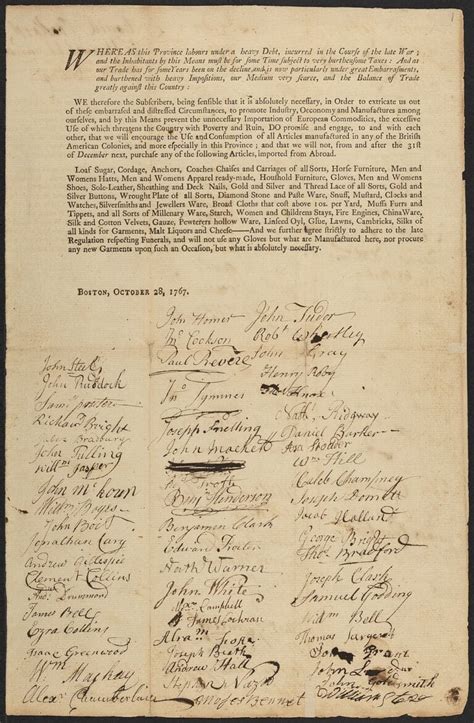 1
WHEREAS this Province labours under a heavy Debt, incurred in the Course of the late War;
and the Inhabitants by this Means must be for some Time subject to very burthensome Taxes: And as
our Trade has for some Years been on the decline, and is now particularly under great Embarrassments,
and burthened with heavy Impositions, our Medium very scarce, and the Balance of Trade
greatly against this Country:
WE therefore the Subscribers, being sensible that it is absolutely necessary, in Order to extricate us out
of these embarrassed and distressed Circumstances, to promote Industry, Oeconomy and Manufactures among
ourselves, and by this Means prevent the unnecessary Importation of European Commodities, the excessive
Use of which threatens the Country with Poverty and Ruin, DO promise and engage, to and with each
other, that we will encourage the Use and Consumption of all Articles manufactured in any of the British
American Colonies, and more especially in this Province; and that we will not, from and after the 31st
of December next, purchase any of the following Articles, imported from Abroad.
Loaf Sugar, Cordage, Anchors, Coaches Chaises and Carriages of all Sorts, Horse Furniture, Men and
Womens Hatts, Men and Womens Apparel ready-made, Houshold Furniture, Gloves, Men and Womens
Shoes, Sole-Leather, Sheathing and Deck Nails, Gold and Silver and Thread Lace of all Sorts, Gold and
Silver Buttons, Wrought Plate of all Sorts, Diamond Stone and Paste Ware, Snuff, Mustard, Clocks and
Watches, Silversmiths and Jewellers Ware, Broad Cloths that cost above 10s. per Yard, Muffs Furrs and
Tippets, and all Sorts of Millenary Ware, Starch, Women and Childrens Stays, Fire Engines, China Ware,
Silk and Cotton Velvets, Gauze, Pewterers hollow Ware, Linseed Oyl, Glue, Lawns, Cambricks, Silks of
all kinds for Garments, Malt Liquors and Cheese—And we further agree strictly to adhere to the late
Regulation respecting Funerals, and will not use any Gloves but what are Manufactured here, nor procure
any new Garments upon such an Occasion, but what is absolutely necessary.
BOSTON, OCTOBER 28, 1767.
John Homer
Paul Revere
Joseph Snelling
John Mackett
Benj Henderson
Benjamin Clark
Edward Procter
Nath Warner
John White
Campbell
James Cochran
Joseph
Andrew Hall
Stephen
Moses Bennet
John Tudor
John Gray
Henry Roby
Knox
Nath. Ridgway
Daniel Barker
Wm Hill
Caleb Champney
Joseph
Jacob Holland
George Bright
Tho. Bradford
Joseph Clark
Samuel
Bell
Thomas Sargent
John
John
John Goldsmith
William
John
John Ruddock
Richard Bright
Bradbury
John
John Boit
Jonathan Cary
Andrew Gillespie
Clement Collins
Drummond
James Bell
Ezra Collins
Isaac Greenwood
Wm Mackay
Alexr Chamberlain